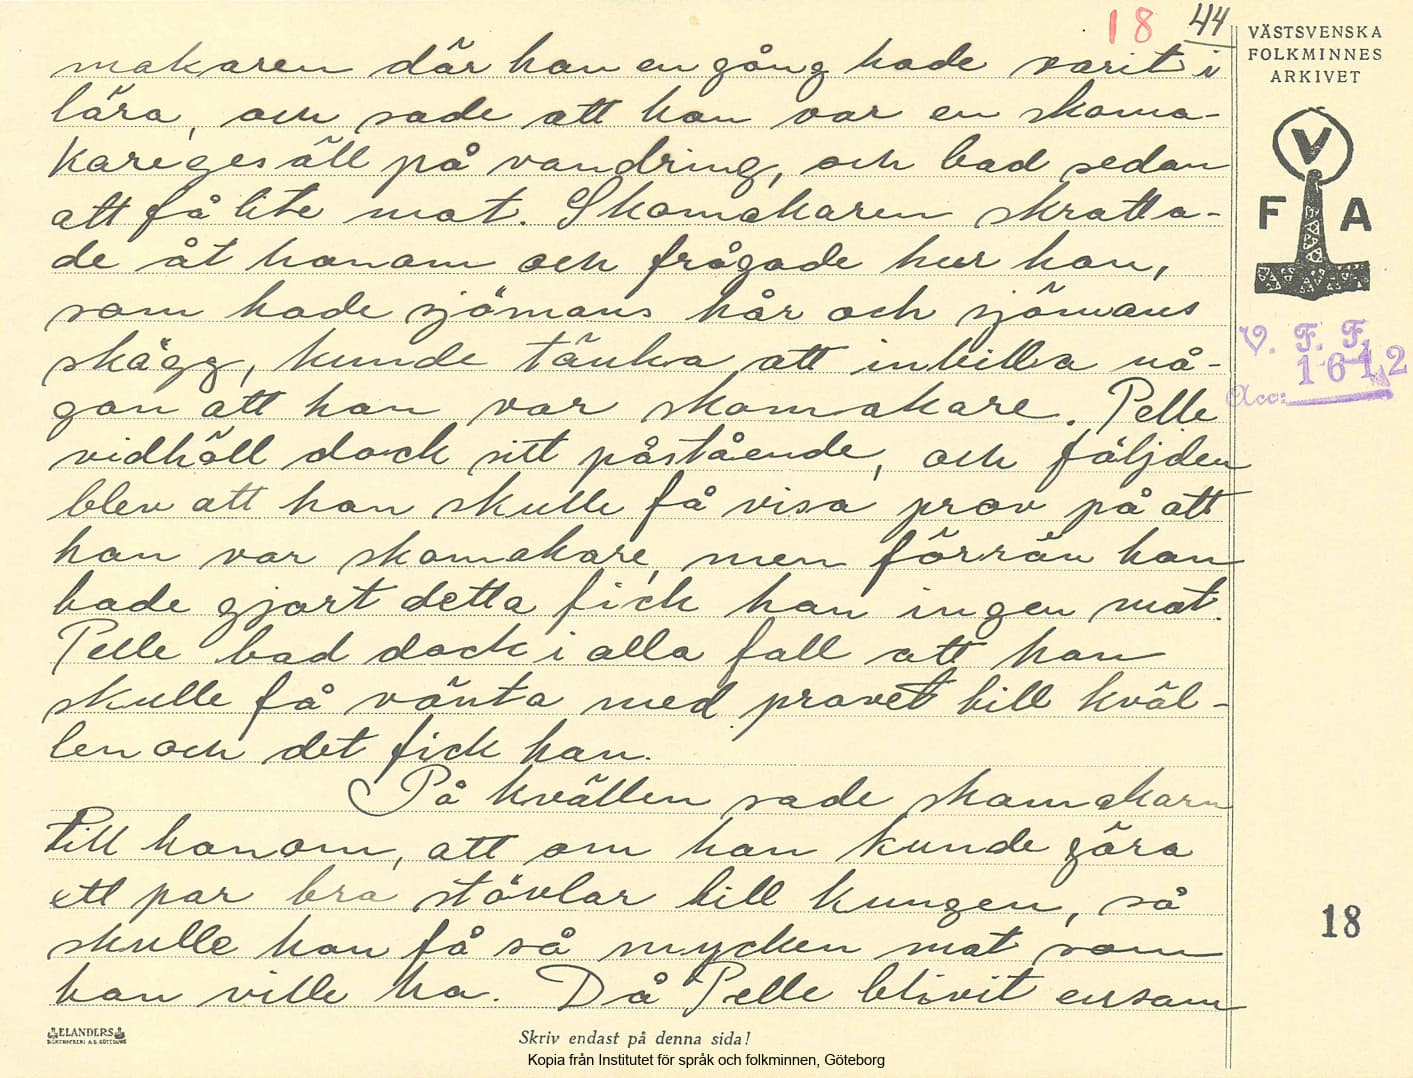 18 44
VÄSTSVENSKA
FOLKMINNES
ARKIVET
V
F A
V. F. F.
1612
Acc:
makaren där han en gång hade varit i
lära, och sade att han var en skoma-
karegesäll på vandring, och bad sedan
att få lite mat. Skomakaren skratta-
de åt honom och frågade hur han,
som hade sjömans hår och sjömans
skägg, kunde tänka att inbilla nå-
gon att han var skomakare. Pelle
vidhöll dock sitt påstående, och följden
blev att han skulle få visa prov på att
han var skomakare, men förrän han
hade gjort detta fick han ingen mat.
Pelle bad dock i alla fall att han
skulle få vänta med provet till kväl-
len och det fick han.
På kvällen sade skomakarn
till honom, att om han kunde göra
ett par bra stövlar till kungen, så
skulle han få så mycken mat som
han ville ha. Då Pelle blivit ensam
18
ELANDERS
Skriv endast på denna sida!
Kopia från Institutet för språk och folkminnen, Göteborg